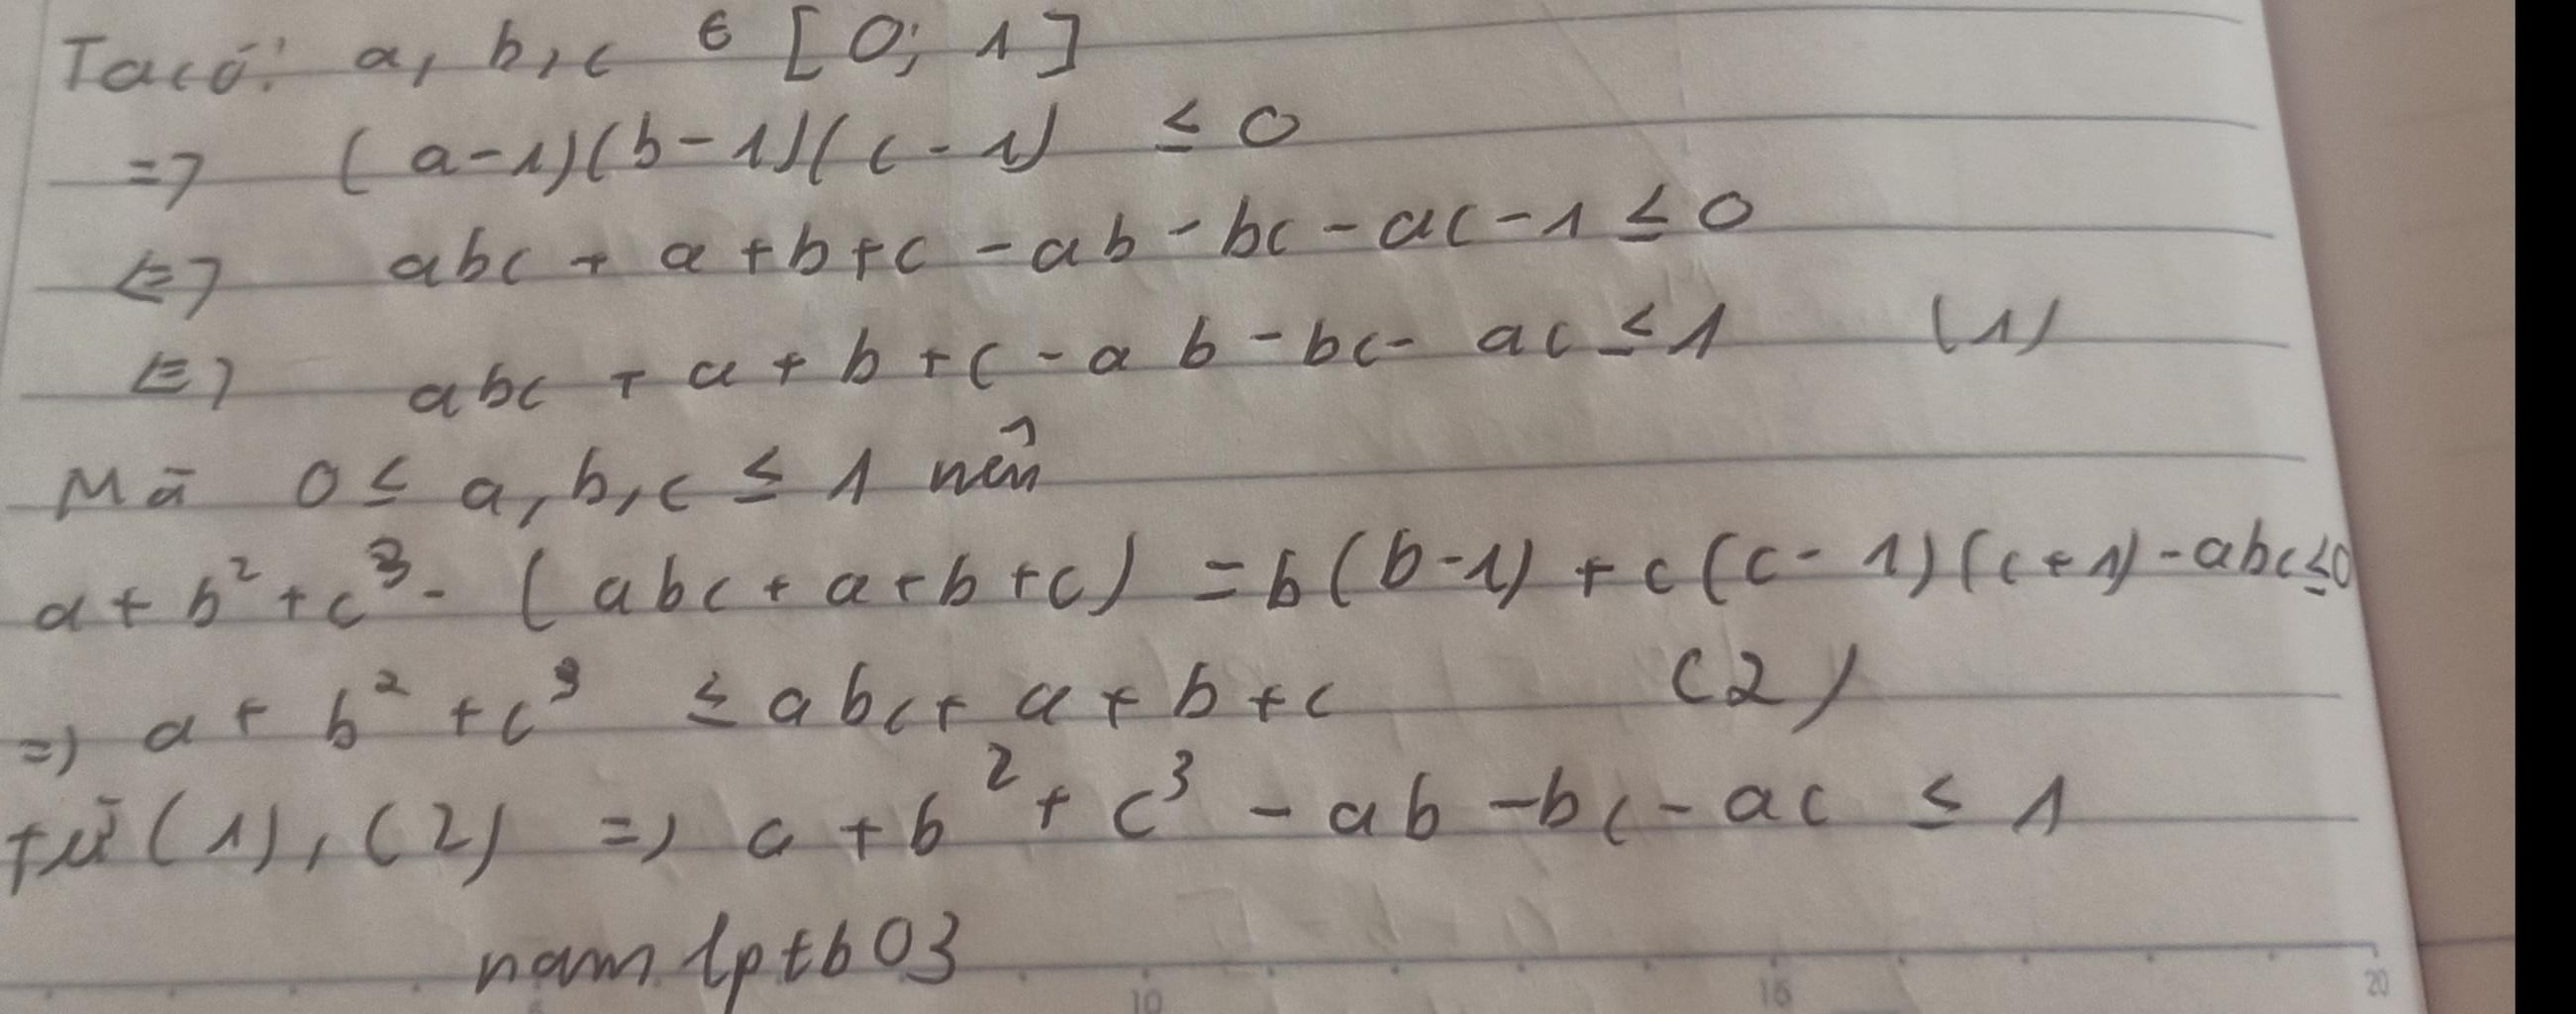 Ta có: a, b, c ∈ [0; 1]
=> (a-1)(b-1)(c-1) ≤ 0
<=> abc + a + b + c - ab - bc - ac - 1 ≤ 0
<=> abc + a + b + c - ab - bc - ac ≤ 1 (1)
Mà 0 ≤ a, b, c ≤ 1 nên
a + b² + c³ - (abc + a + b + c) = b(b-1) + c(c-1)(c+1) - abc ≤ 0
=> a + b² + c³ ≤ abc + a + b + c (2)
từ (1), (2) => a + b² + c³ - ab - bc - ac ≤ 1
nam lptb03
10 15 20